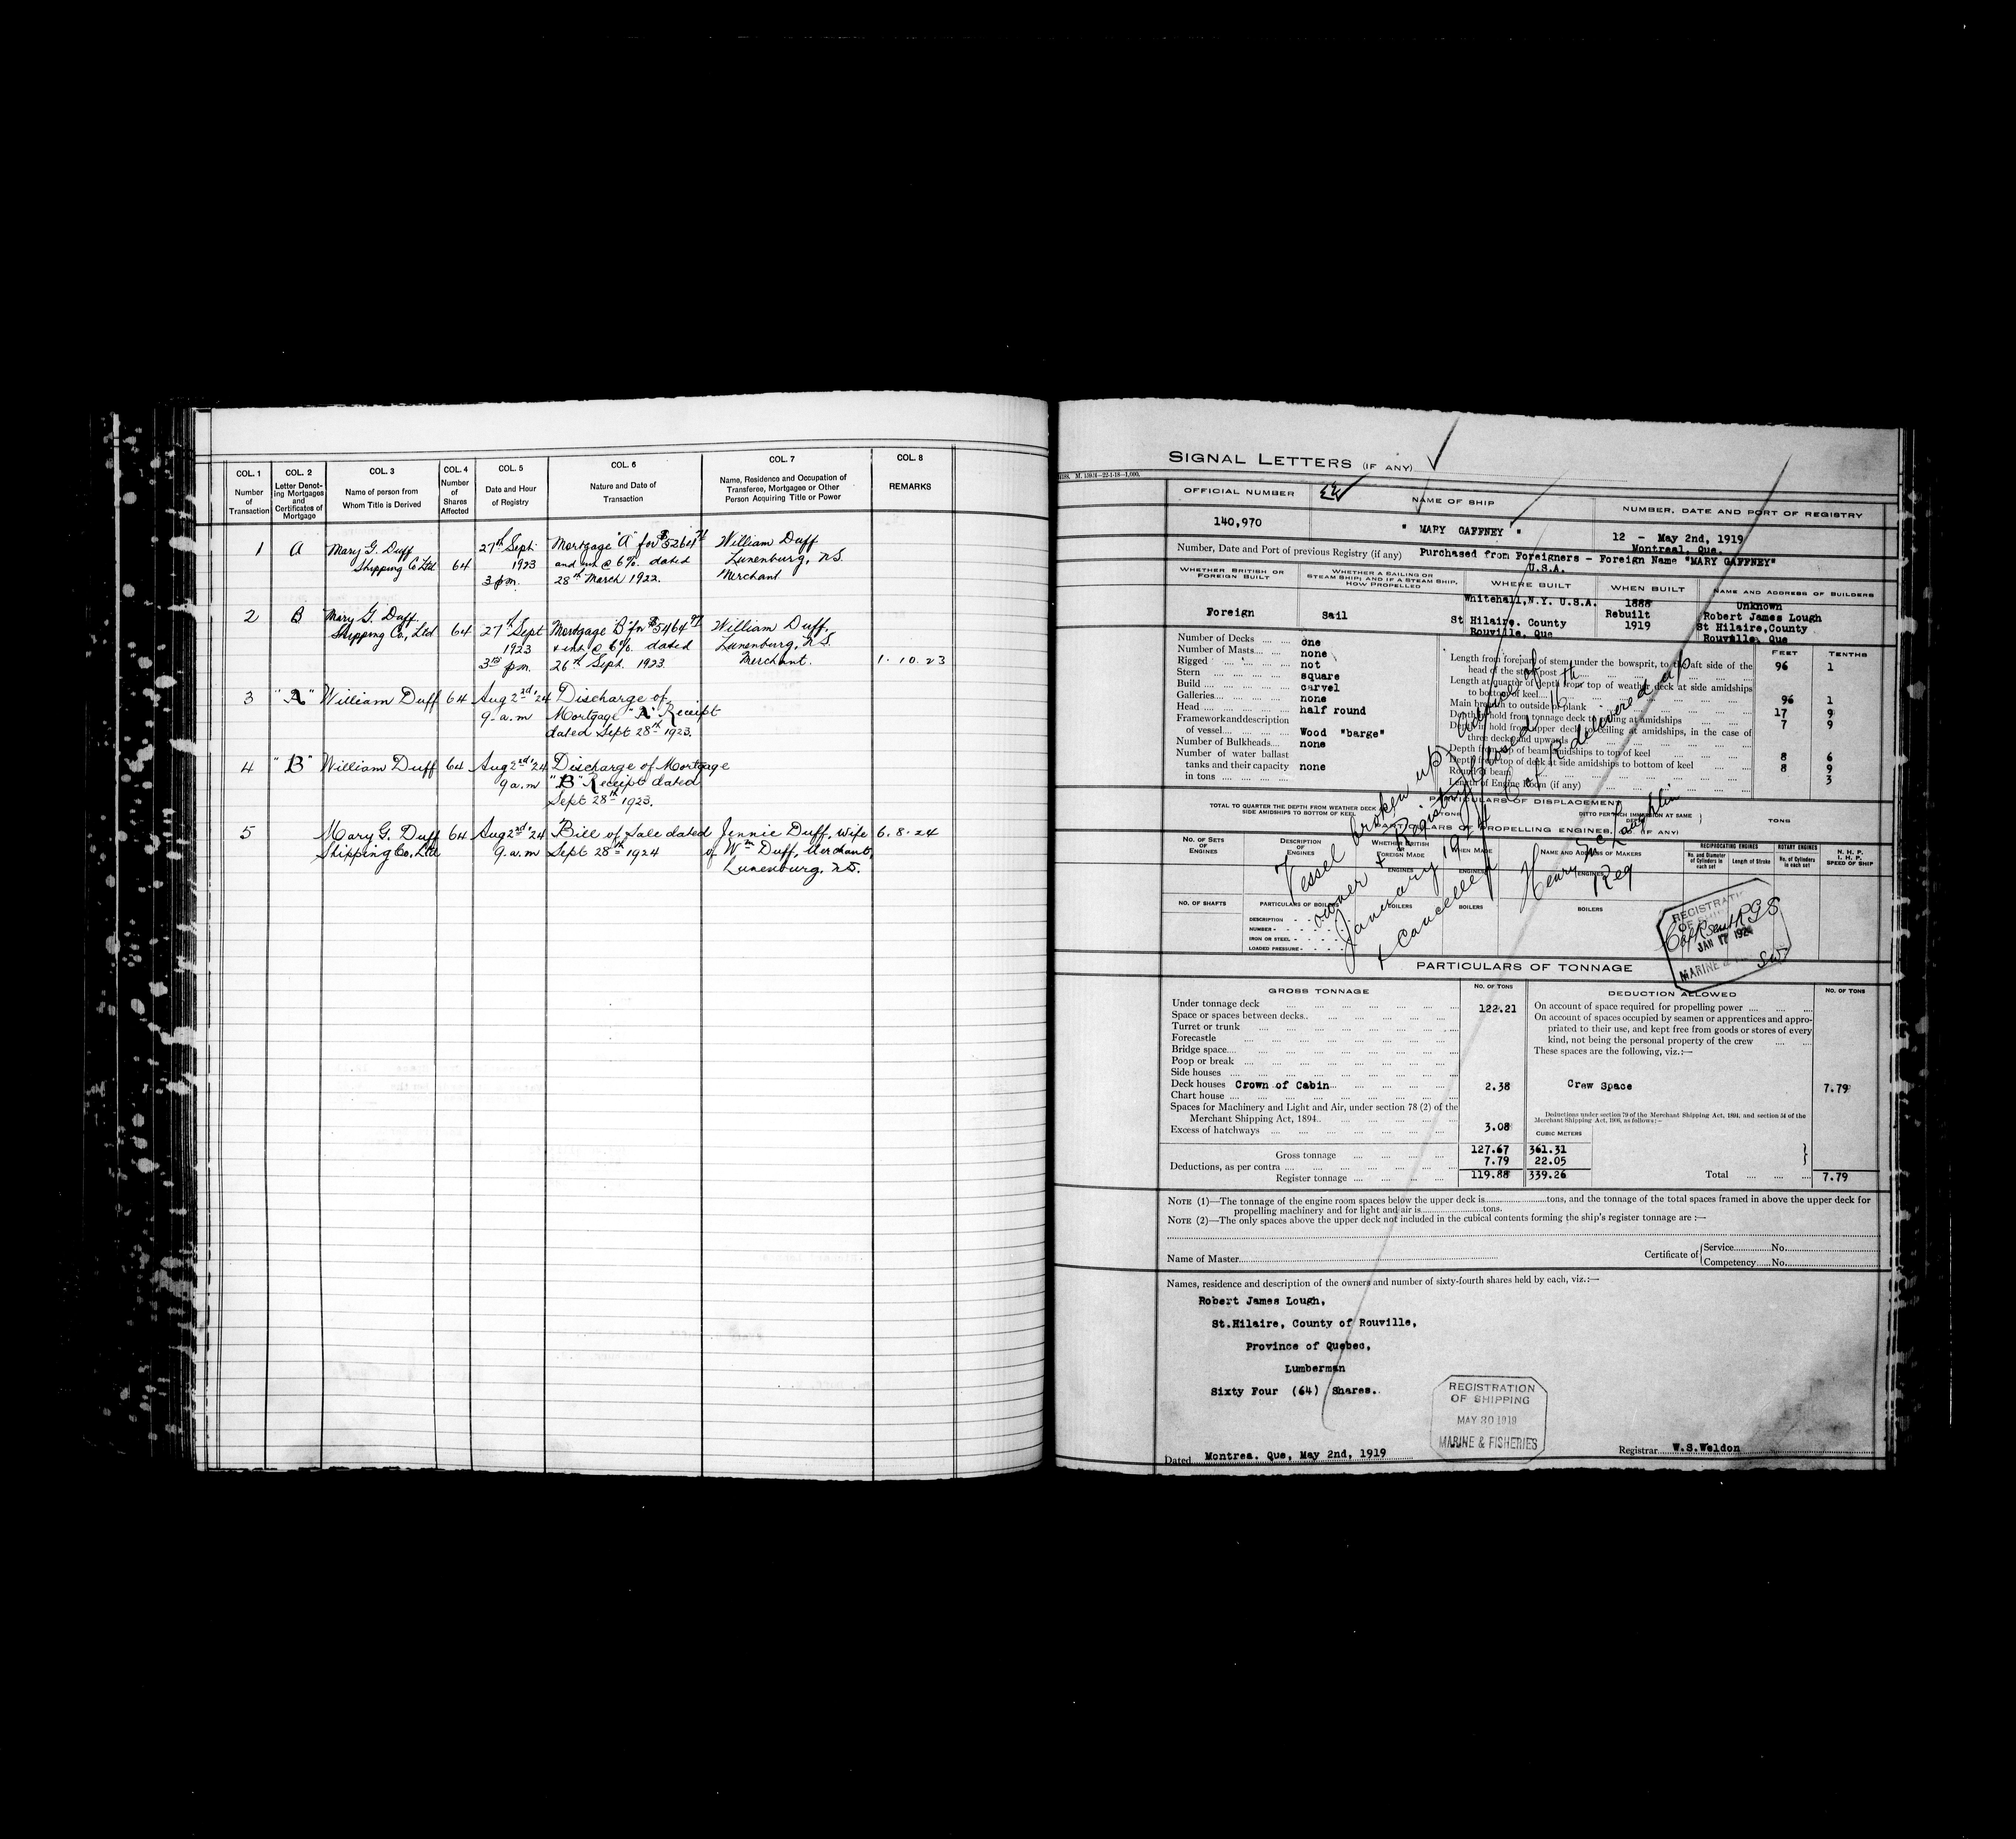 COL. 1
Number
of
Transaction
COL. 2
Letter Denot-
ing Mortgages
and
Certificates of
Mortgage
COL. 3
Name of person from
Whom Title is Derived
COL. 4
Number
of
Shares
Affected
COL. 5
Date and Hour
of Registry
COL. 6
Nature and Date of
Transaction
COL. 7
Name, Residence and Occupation of
Transferee, Mortgagee or Other
Person Acquiring Title or Power
COL. 8
REMARKS
1 A Mary G. Duff 27th Sept. Mortgage "A" for $5264 William Duff
Shipping Co Ltd 64 1923 and int @ 6%. dated Lunenburg, N.S.
3 p.m. 28th March 1922. Merchant
2 B Mary G. Duff
Shipping Co, Ltd 64 27th Sept Mortgage B for $5464 William Duff,
1923 & int. @ 6%. dated Lunenburg, N.S.
3 p.m. 26th Sept. 1923. Merchant. 1. 10. 23
3 "A" William Duff 64 Aug 2nd '24 Discharge of
9. a.m Mortgage "A" Receipt
dated Sept 28th 1923.
4 "B" William Duff 64 Aug 2nd '24 Discharge of Mortgage
9 a.m "B" Receipt dated
Sept 28th 1923.
5 Mary G. Duff 64 Aug 2nd '24 Bill of Sale dated Jennie Duff, wife 6. 8. 24
Shipping Co, Ltd 9. a.m Sept 28th 1924 of Wm Duff, Merchant,
Lunenburg, N.S.
SIGNAL LETTERS (IF ANY)
OFFICIAL NUMBER
140,970
NAME OF SHIP
" MARY GAFFNEY "
NUMBER, DATE AND PORT OF REGISTRY
12 - May 2nd, 1919
Montreal, Que.
Number, Date and Port of previous Registry (if any) Purchased from Foreigners - Foreign Name "MARY GAFFNEY"
U.S.A.
WHETHER BRITISH OR
FOREIGN BUILT
Foreign
WHETHER A SAILING OR
STEAM SHIP; AND IF A STEAM SHIP,
HOW PROPELLED
Sail
WHERE BUILT
Whitehall,N.Y. U.S.A.
St Hilaire. County
Rouville. Que
WHEN BUILT
1888
Rebuilt
1919
NAME AND ADDRESS OF BUILDERS
Unknown
Robert James Lough
St Hilaire,County
Rouville, Que
Number of Decks one
Number of Masts none
Rigged not
Stern square
Build carvel
Galleries none
Head half round
Framework and description
of vessel Wood "barge"
Number of Bulkheads none
Number of water ballast
tanks and their capacity none
in tons
FEET TENTHS
Length from forepart of stem, under the bowsprit, to the aft side of the
head of the stern post 96 1
Length at quarter of depth from top of weather deck at side amidships
to bottom of keel 96 1
Main breadth to outside of plank 17 9
Depth in hold from tonnage deck to ceiling at amidships 7 9
Depth in hold from upper deck to ceiling at amidships, in the case of
three decks and upwards
Depth from top of beam amidships to top of keel 8 6
Depth from top of deck at side amidships to bottom of keel 8 9
Round of beam 3
Length of Engine Room (if any)
PARTICULARS OF DISPLACEMENT
TOTAL TO QUARTER THE DEPTH FROM WEATHER DECK AT
SIDE AMIDSHIPS TO BOTTOM OF KEEL
TONS
DITTO PER INCH IMMERSION AT SAME
DEPTH
TONS
PARTICULARS OF PROPELLING ENGINES, (IF ANY)
NO. OF SETS
OF
ENGINES
DESCRIPTION
OF
ENGINES
WHETHER BRITISH
OR
FOREIGN MADE
WHEN MADE
NAME AND ADDRESS OF MAKERS
RECIPROCATING ENGINES
No. and Diameter
of Cylinders in
each set
Length of Stroke
ROTARY ENGINES
No. of Cylinders
in each set
N. H. P.
I. H. P.
SPEED OF SHIP
ENGINES ENGINES ENGINES
NO. OF SHAFTS
PARTICULARS OF BOILERS
BOILERS BOILERS BOILERS
DESCRIPTION
NUMBER
IRON OR STEEL
LOADED PRESSURE
Vessel broken up, advice of
owner & Registry closed 16th
January 1924 C of R delivered up
& cancelled
Henry McLaughlin
Reg
REGISTRATION
OF SHIPPING
JAN 17 1924
MARINE &
PARTICULARS OF TONNAGE
GROSS TONNAGE
NO. OF TONS
Under tonnage deck 122.21
Space or spaces between decks
Turret or trunk
Forecastle
Bridge space
Poop or break
Side houses
Deck houses Crown of Cabin 2.38
Chart house
Spaces for Machinery and Light and Air, under section 78 (2) of the
Merchant Shipping Act, 1894
Excess of hatchways 3.08
Gross tonnage 127.67 361.31
Deductions, as per contra 7.79 22.05
Register tonnage 119.88 339.26
DEDUCTION ALLOWED
NO. OF TONS
On account of space required for propelling power
On account of spaces occupied by seamen or apprentices and appro-
priated to their use, and kept free from goods or stores of every
kind, not being the personal property of the crew
These spaces are the following, viz.:—
Crew Space 7.79
Deductions under section 79 of the Merchant Shipping Act, 1894, and section 54 of the
Merchant Shipping Act, 1906, as follows:—
CUBIC METERS
Total 7.79
NOTE (1)—The tonnage of the engine room spaces below the upper deck is tons, and the tonnage of the total spaces framed in above the upper deck for
propelling machinery and for light and air is tons.
NOTE (2)—The only spaces above the upper deck not included in the cubical contents forming the ship's register tonnage are :—
Name of Master
Certificate of Service No.
Competency No.
Names, residence and description of the owners and number of sixty-fourth shares held by each, viz.:—
Robert James Lough,
St.Hilaire, County of Rouville,
Province of Quebec,
Lumberman
Sixty Four (64) Shares.
REGISTRATION
OF SHIPPING
MAY 30 1919
MARINE & FISHERIES
Dated Montrea. Que, May 2nd, 1919
Registrar W.S.Weldon